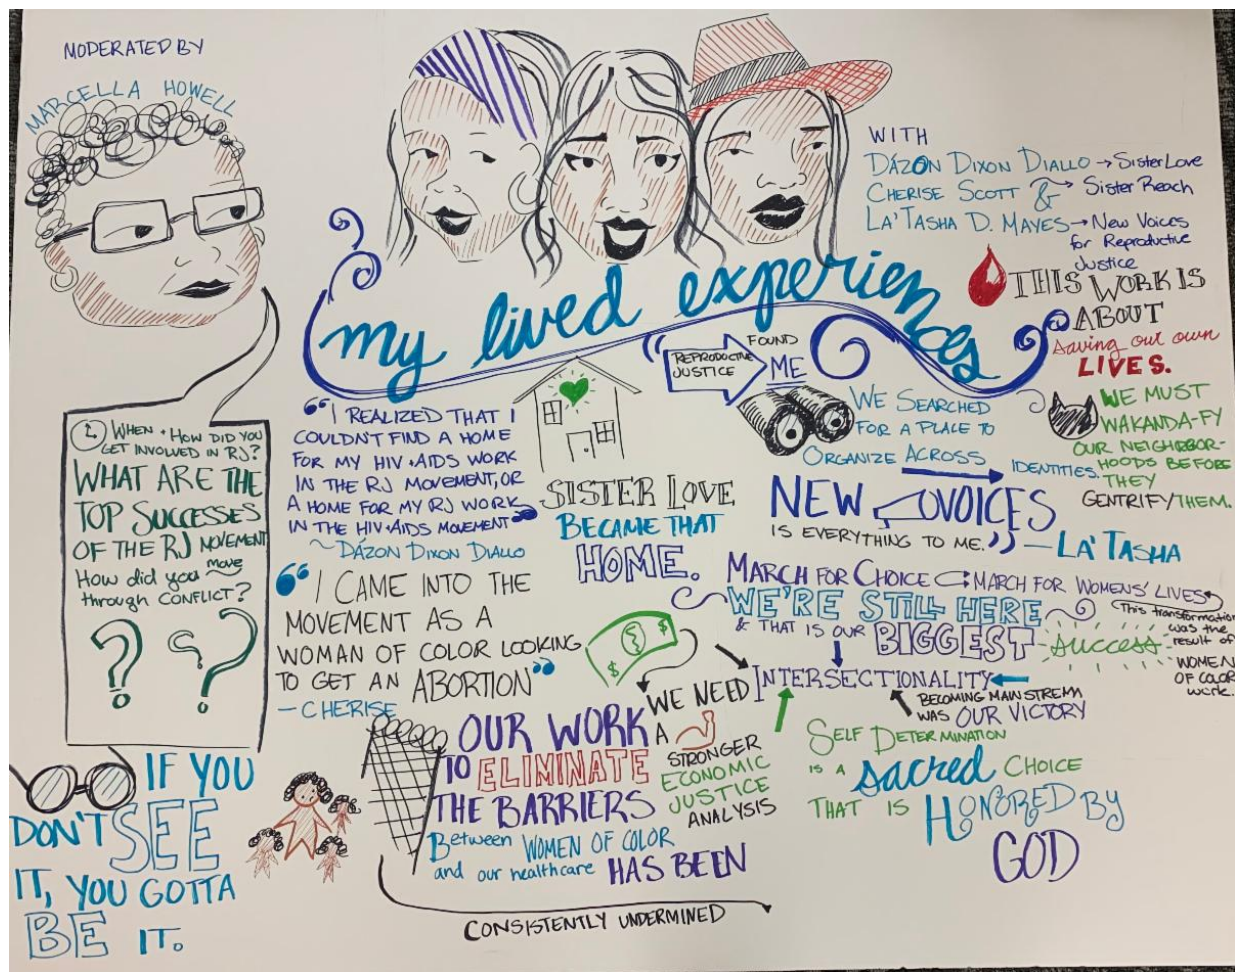 MODERATED BY
MARCELLA HOWELL
WITH
DÁZON DIXON DIALLO → SisterLove
CHERISE SCOTT & → Sister Reach
LA'TASHA D. MAYES → New Voices
for Reproductive
Justice
my lived experiences
THIS WORK IS
ABOUT
saving our own
LIVES.
WE MUST
WAKANDA-FY
OUR NEIGHBOR-
HOODS BEFORE
THEY
GENTRIFY THEM.
WHEN + HOW DID YOU
GET INVOLVED IN RJ?
WHAT ARE THE
TOP SUCCESSES
OF THE RJ MOVEMENT
How did you move
through CONFLICT?
? ?
IF YOU
DON'T SEE
IT, YOU GOTTA
BE IT.
"I REALIZED THAT I
COULDN'T FIND A HOME
FOR MY HIV + AIDS WORK
IN THE RJ MOVEMENT, OR
A HOME FOR MY RJ WORK
IN THE HIV + AIDS MOVEMENT"
~ DÁZON DIXON DIALLO
SISTER LOVE
BECAME THAT
HOME.
"I CAME INTO THE
MOVEMENT AS A
WOMAN OF COLOR LOOKING
TO GET AN ABORTION"
— CHERISE
"REPRODUCTIVE
JUSTICE
FOUND
ME
WE SEARCHED
FOR A PLACE TO
ORGANIZE ACROSS → IDENTITIES.
NEW VOICES
IS EVERYTHING TO ME." — LA'TASHA
MARCH FOR CHOICE MARCH FOR WOMENS' LIVES
This transformation
was the
result of
WOMEN
OF COLOR
work.
WE'RE STILL HERE
& THAT IS OUR BIGGEST success
INTERSECTIONALITY
BECOMING MAINSTREAM
WAS OUR VICTORY
WE NEED
A
STRONGER
ECONOMIC
JUSTICE
ANALYSIS
$ $
OUR WORK
TO ELIMINATE
THE BARRIERS
Between WOMEN OF COLOR
and our healthcare HAS BEEN
CONSISTENTLY UNDERMINED
SELF DETERMINATION
IS A sacred CHOICE
THAT IS HONORED BY
GOD